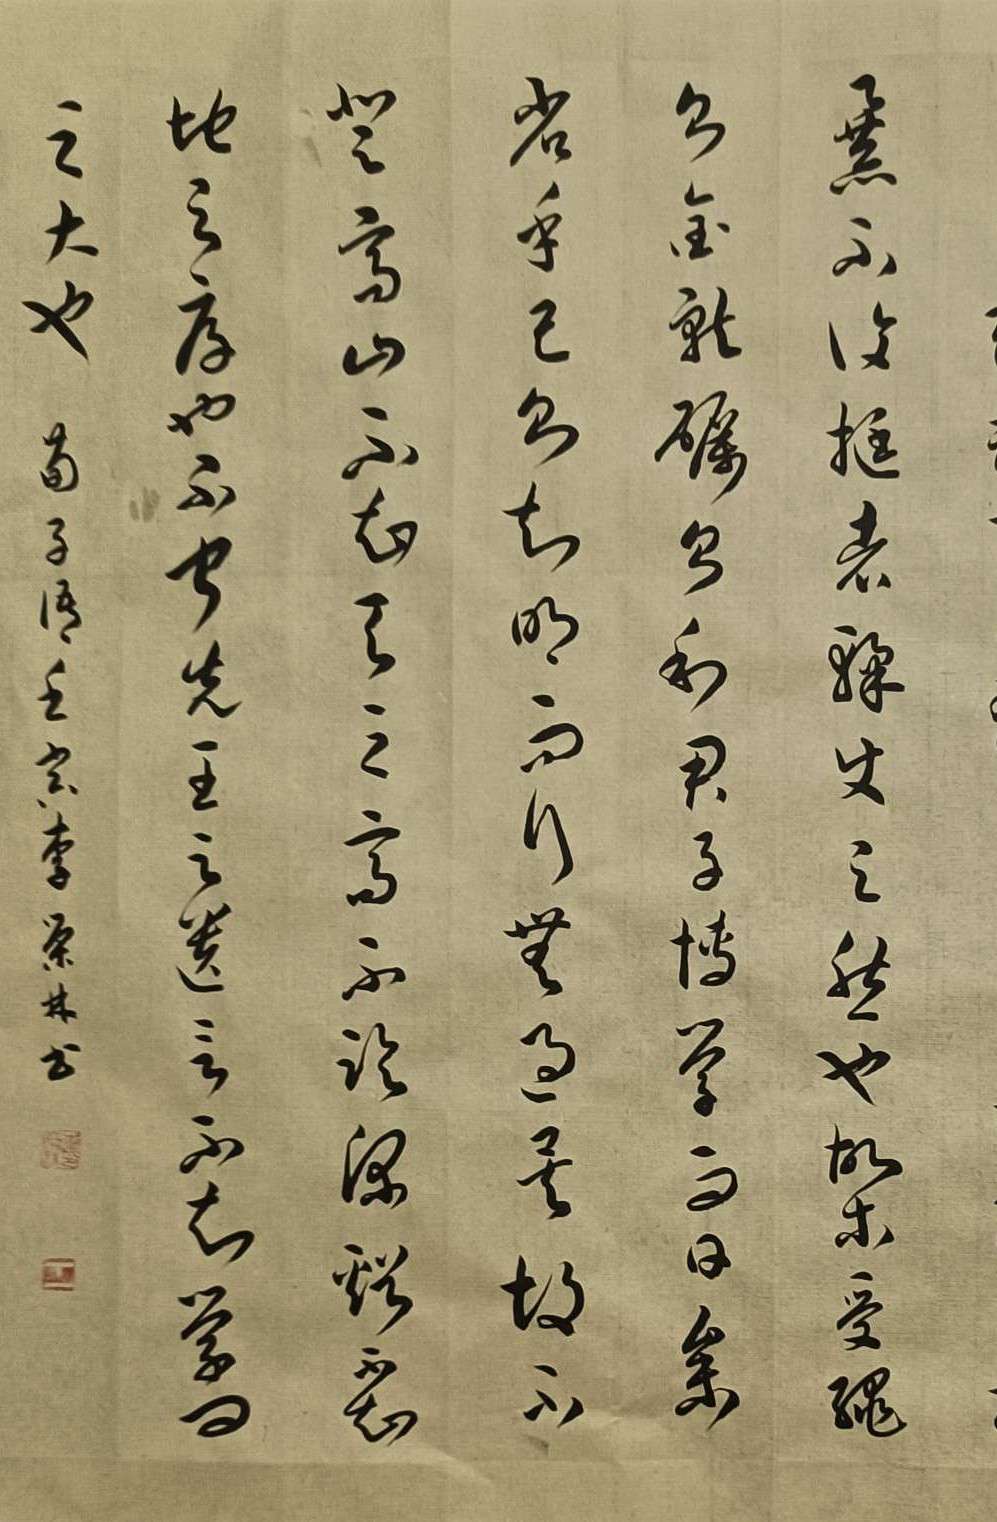 暴不復挺者輮使之然也故木受繩
則金就礪則利君子博學而日參
省乎己則知明而行無過矣故不
登高山不知天之高不臨深谿不知
地之厚也不聞先王之遺言不知學問
之大也 荀子語壬寅李榮林書